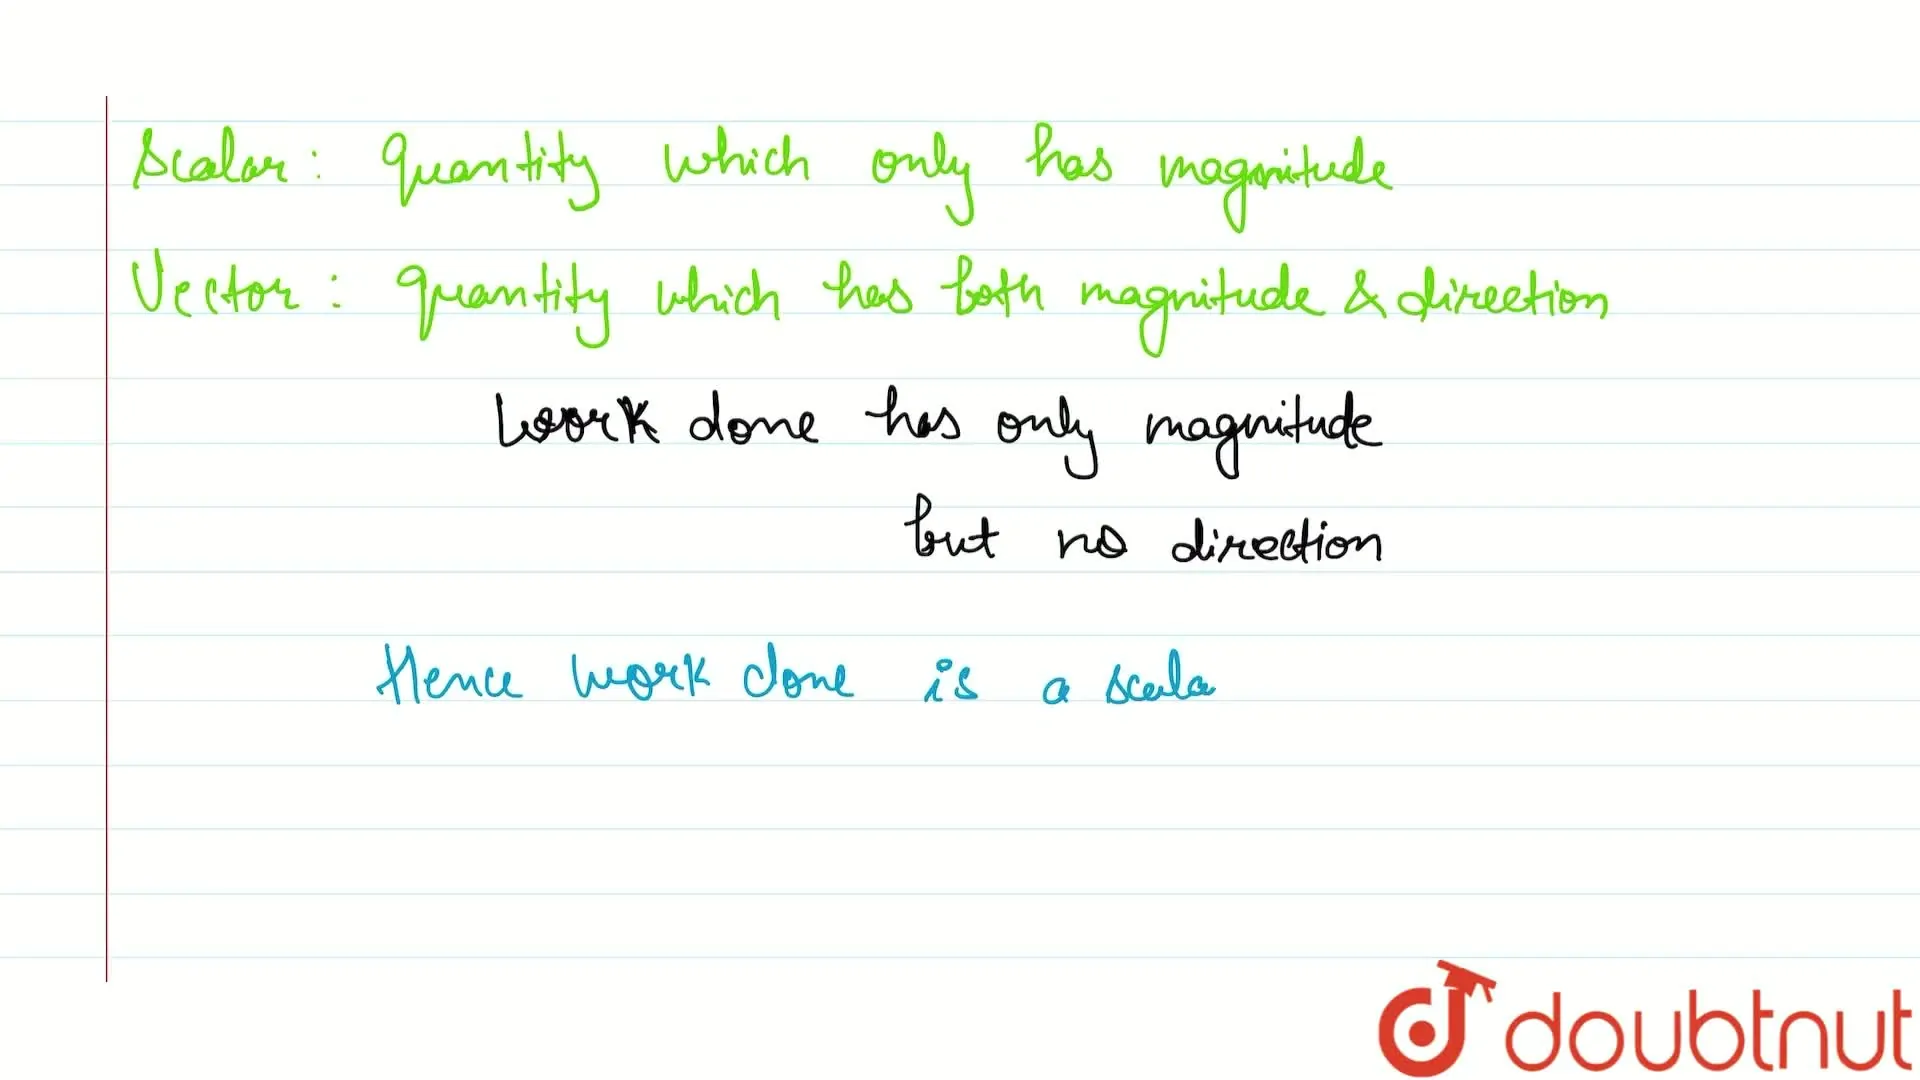 Scalar: quantity which only has magnitude
Vector: quantity which has both magnitude & direction
Work done has only magnitude
but no direction
Hence work done is a scala
doubtnut